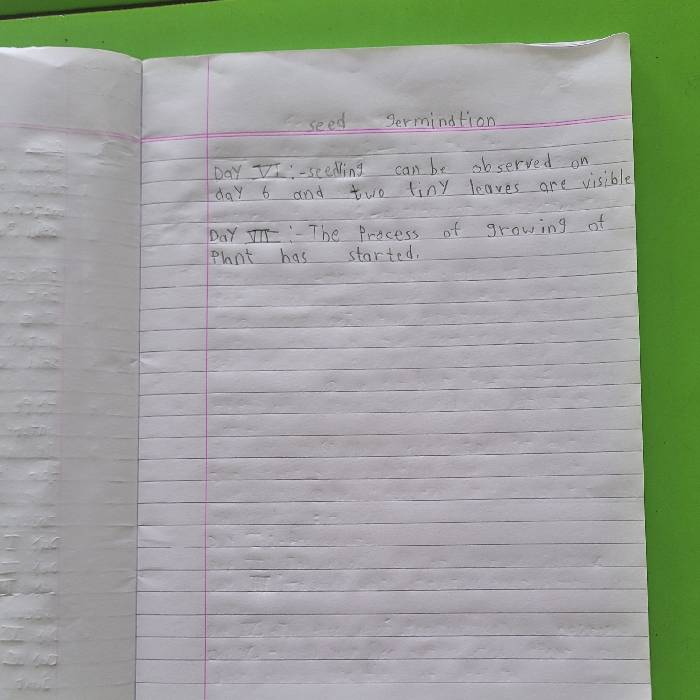 seed germindtion
Day VI :- seedling can be observed on
day 6 and two tiny leaves are visible
Day VII :- The Process of growing of
Plant has started.